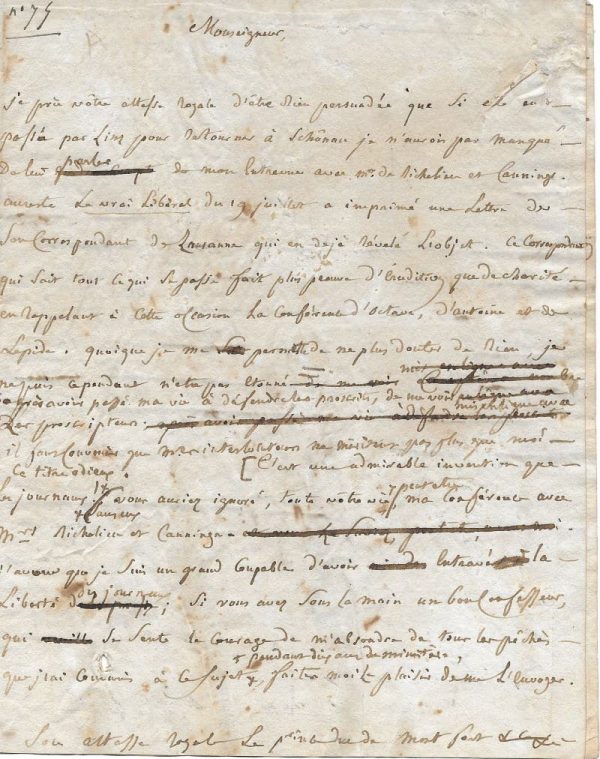 N° 75
Monseigneur,
je prie vôtre altesse Royale d'être bien persuadée que si elle eut
passée par Linz pour retourner à Schönau je n'aurois pas manqué
De lui parler de mon Entrevue avec mrs de Richelieu et Canning.
Le vrai Libéral du 19 juillet a imprimé une Lettre de
Son Correspondant de Lausanne qui en a déjà révélé L'objet. Ce Correspondant
qui sait tout ce qui se passe fait plus preuve d'Erudition que de charité
en rappelant à cette occasion La Conférence d'Octave, d'antoine et de
Lépide. quoique je me permette de ne plus douter de Rien, je
ne puis cependant n'etre pas étonné
après avoir passé ma vie à défendre les proscrits, de me voir
Les proscripteurs.
il
que mes interlocuteurs ne méritent pas plus que moi
Ce titre odieux. C'est une admirable invention que
les journaux! vous auriez ignoré, toute vôtre vie peut être, ma conférence avec
Mrs Richelieu et Canning
j'avoue que je suis un grand Coupable d'avoir Entravé la
Liberté des journaux; si vous avez sous la main un bon Confesseur,
qui se sente le courage de m'absoudre de tous les péchés
pendant dix ans de ministère,
que j'ai commis à ce sujet, faites moi le plaisir de me L'envoyer.
Son altesse royale Le prince duc de Montfort